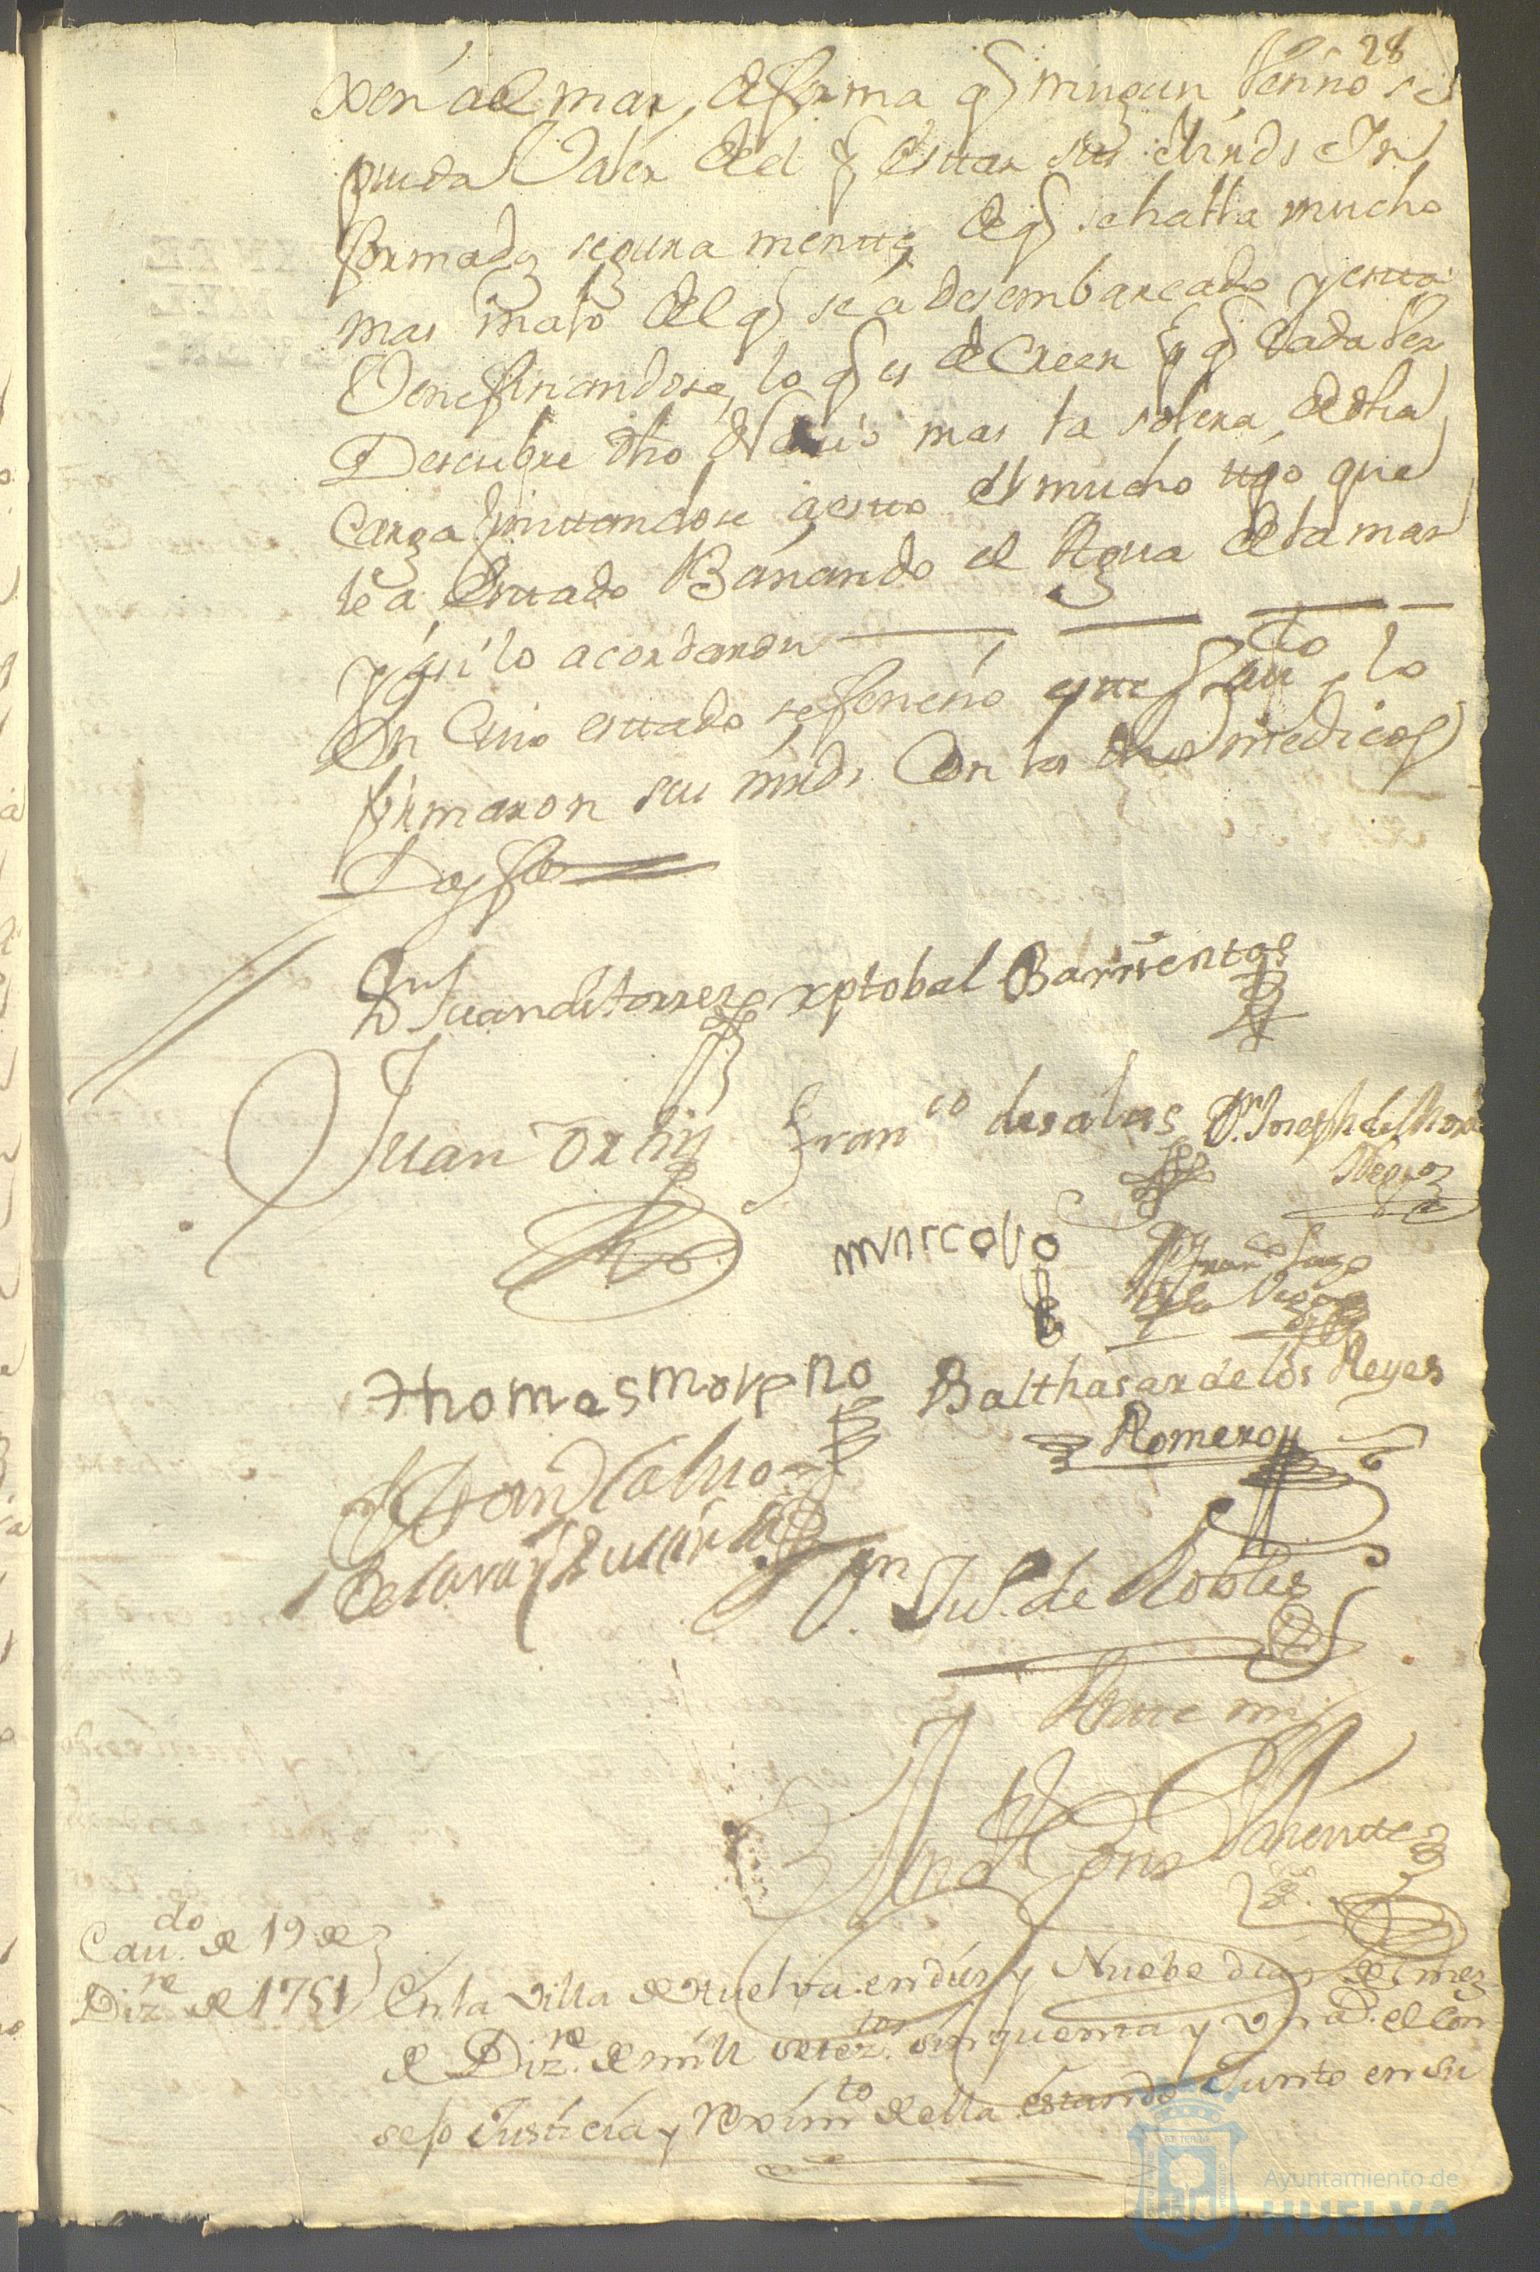 28
xen al mar, de forma q ningun Vezino se
pueda Valer de el p estar sus Mrds In
formados seguramentte de q se halla mucho
mas malo del q se a desembarcado y esta
Venefiziandose, lo q es de Creer p q Cada Vez
Descubre dho Navio mas la solera de dha
Carga juntandose a esto el mucho tpo que
le a estado Bañando el Agua de la mar
y asi lo acordaron
En Cuio estado se feneció este Caudo lo
firmaron sus mrds Con los dhos medicos
Doy fe
Dn Juan de torres xptobal Barrientos
Juan Ortiz Franco de salas Dn Joseph de Mora
Negro
marcos
Dn Franco Lazo
de la Vega
thomas moreno Balthasar de los Reyes
Romero
Dn Juan Calvo
Dn Juo. de Robles
Antte mi
Valientte
Caudo. de 19 de
Dizre de 1751
En la Villa de Huelva en dies y Nuebe dias del mez
de Dizre. de mill seteztos. sinquenta y un ad. el con
sejo Justicia y Reximto de ella estando Junto en su
Ayuntamiento de
HUELVA